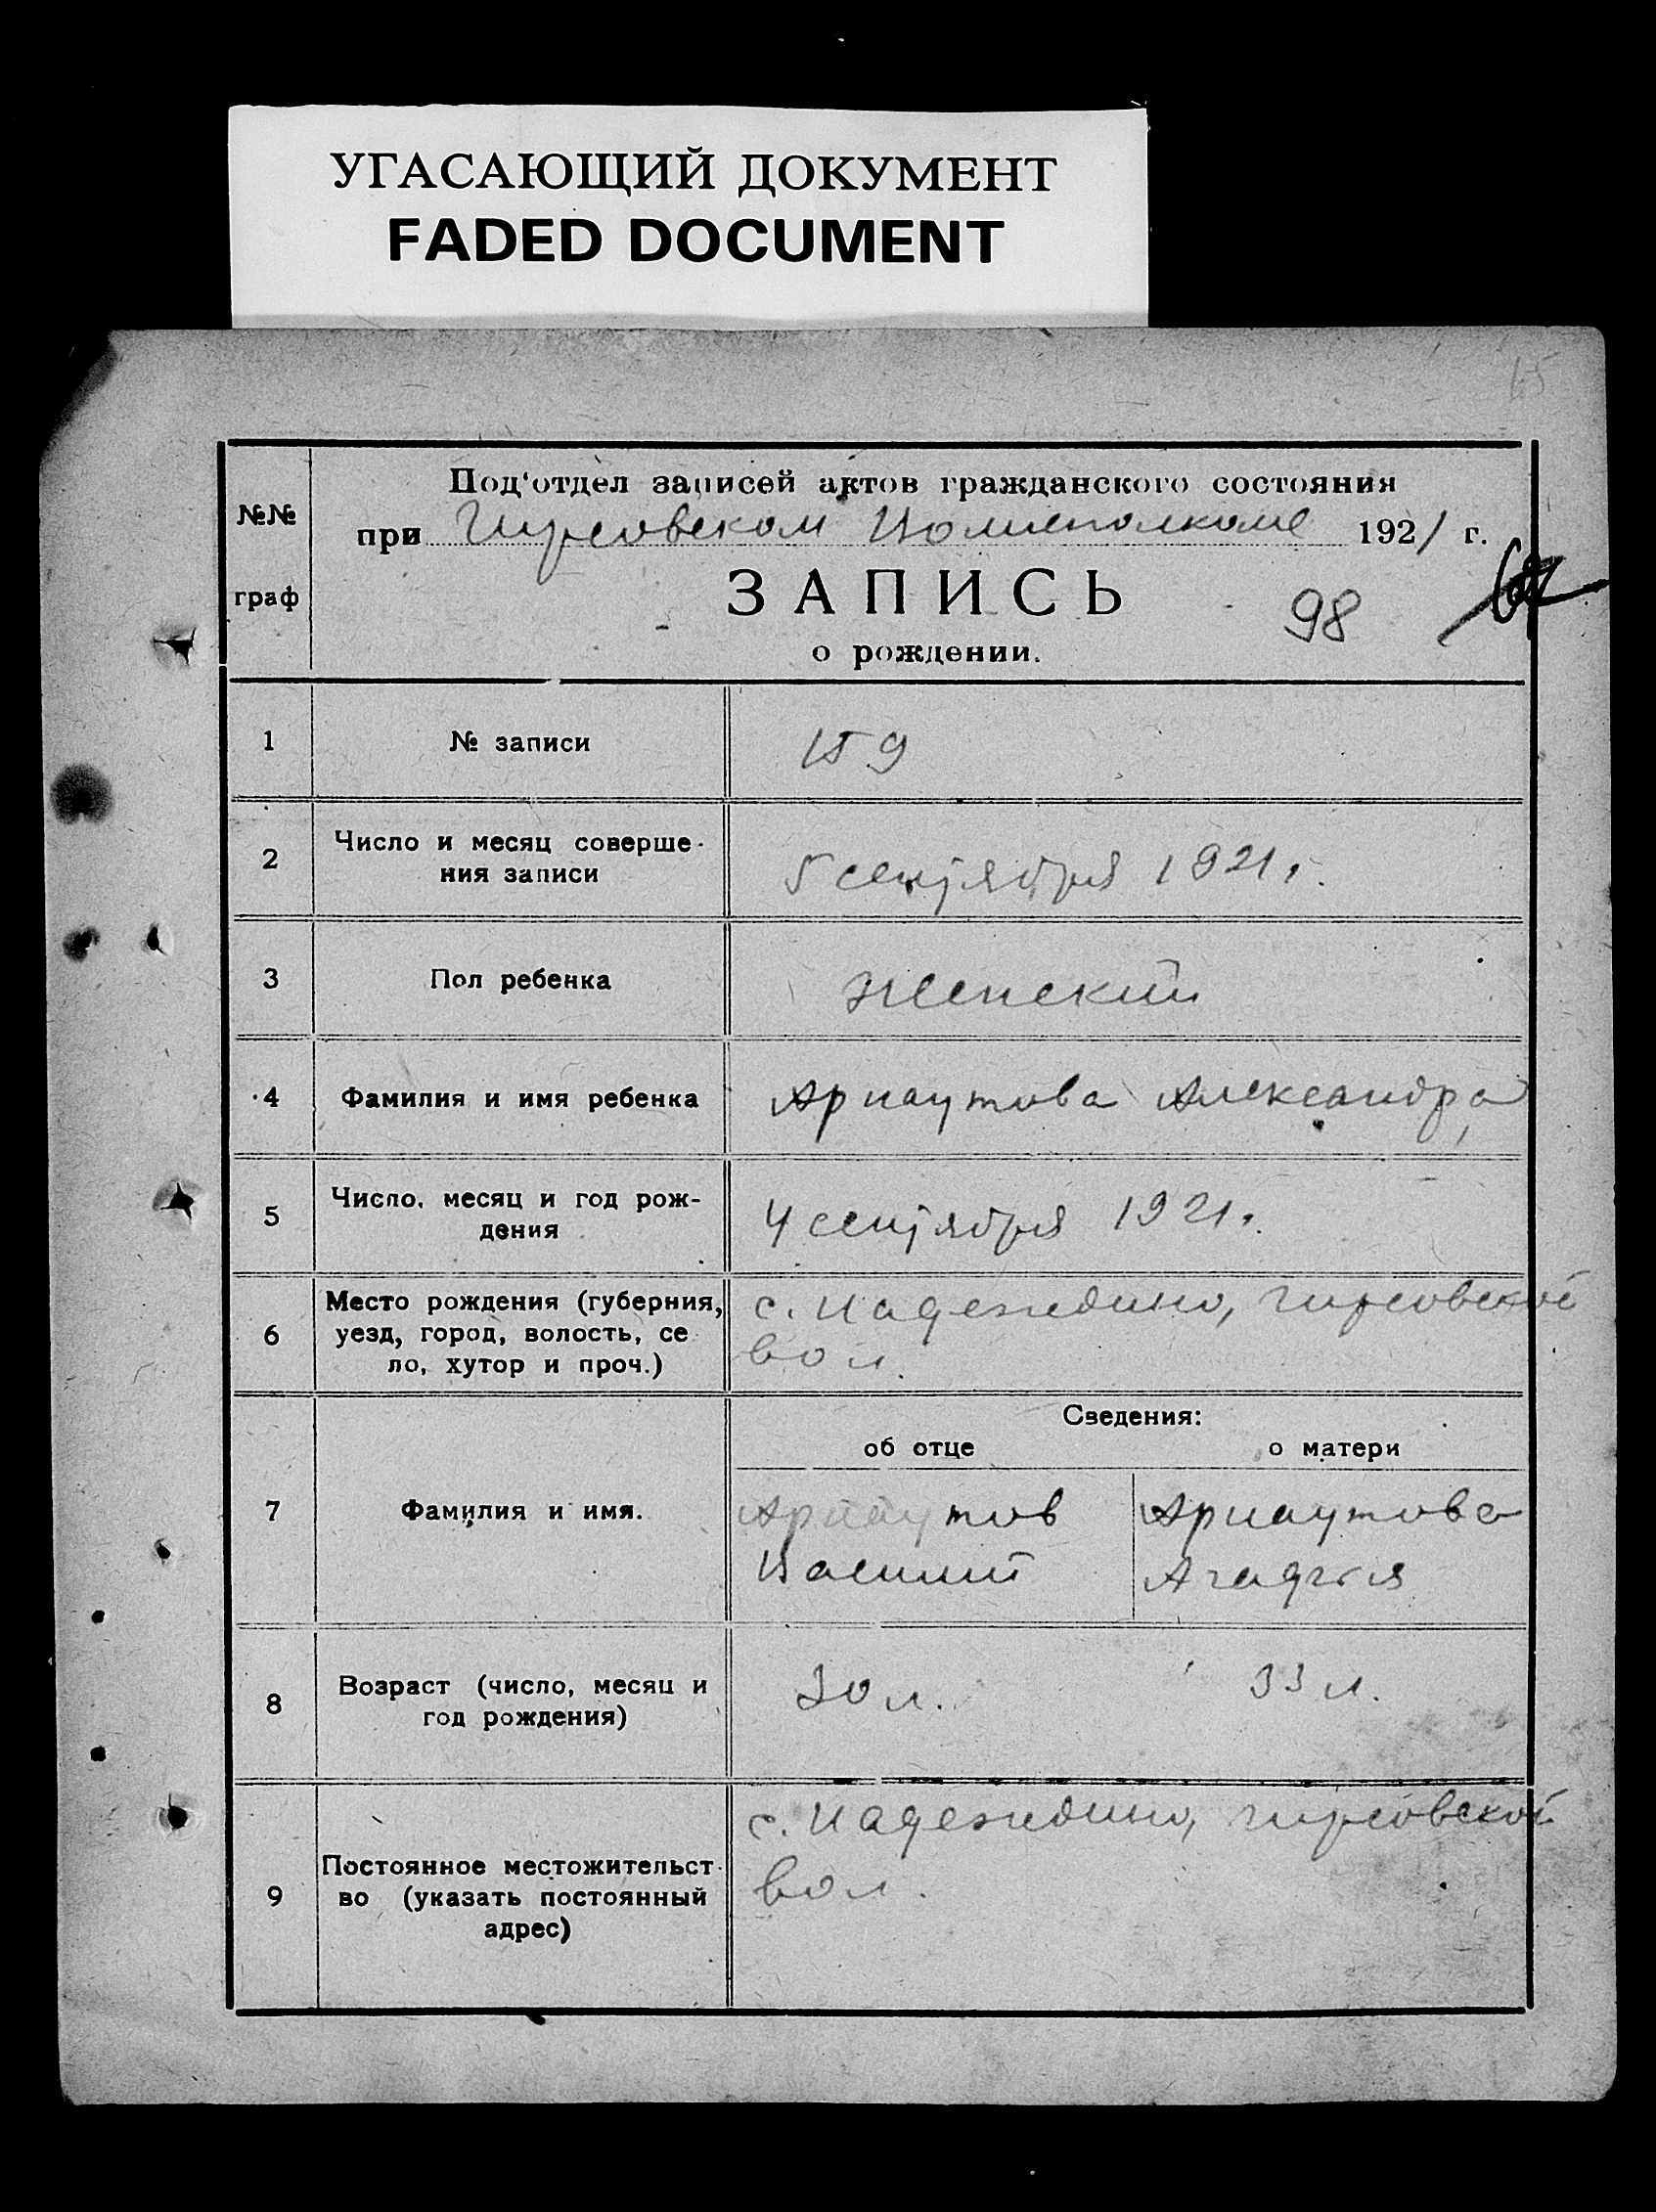 УГАСАЮЩИЙ ДОКУМЕНТ
FADED DOCUMENT
65
№№
граф
Под‘отдел записей актов гражданского состояния
при Гирсовском Волисполкоме 1921 г.
ЗАПИСЬ
98
о рождении.
1 № записи 159
2 Число и месяц соверше-
ния записи
5 сентября 1921 г.
3 Пол ребенка женский
4 Фамилия и имя ребенка Арнаутова Александра
5 Число, месяц и год рож-
дения
4 сентября 1921 г.
6 Место рождения (губерния,
уезд, город, волость, се
ло, хутор и проч.)
с. Надеждино, Гирсовской
вол.
Сведения:
об отце
о матери
7 Фамилия и имя.
Арнаутов
Василий
Арнаутова
Агафья
8 Возраст (число, месяц и
год рождения)
30 л.
33 л.
9 Постоянное местожительст-
во (указать постоянный
адрес)
с. Надеждино, Гирсовской
вол.